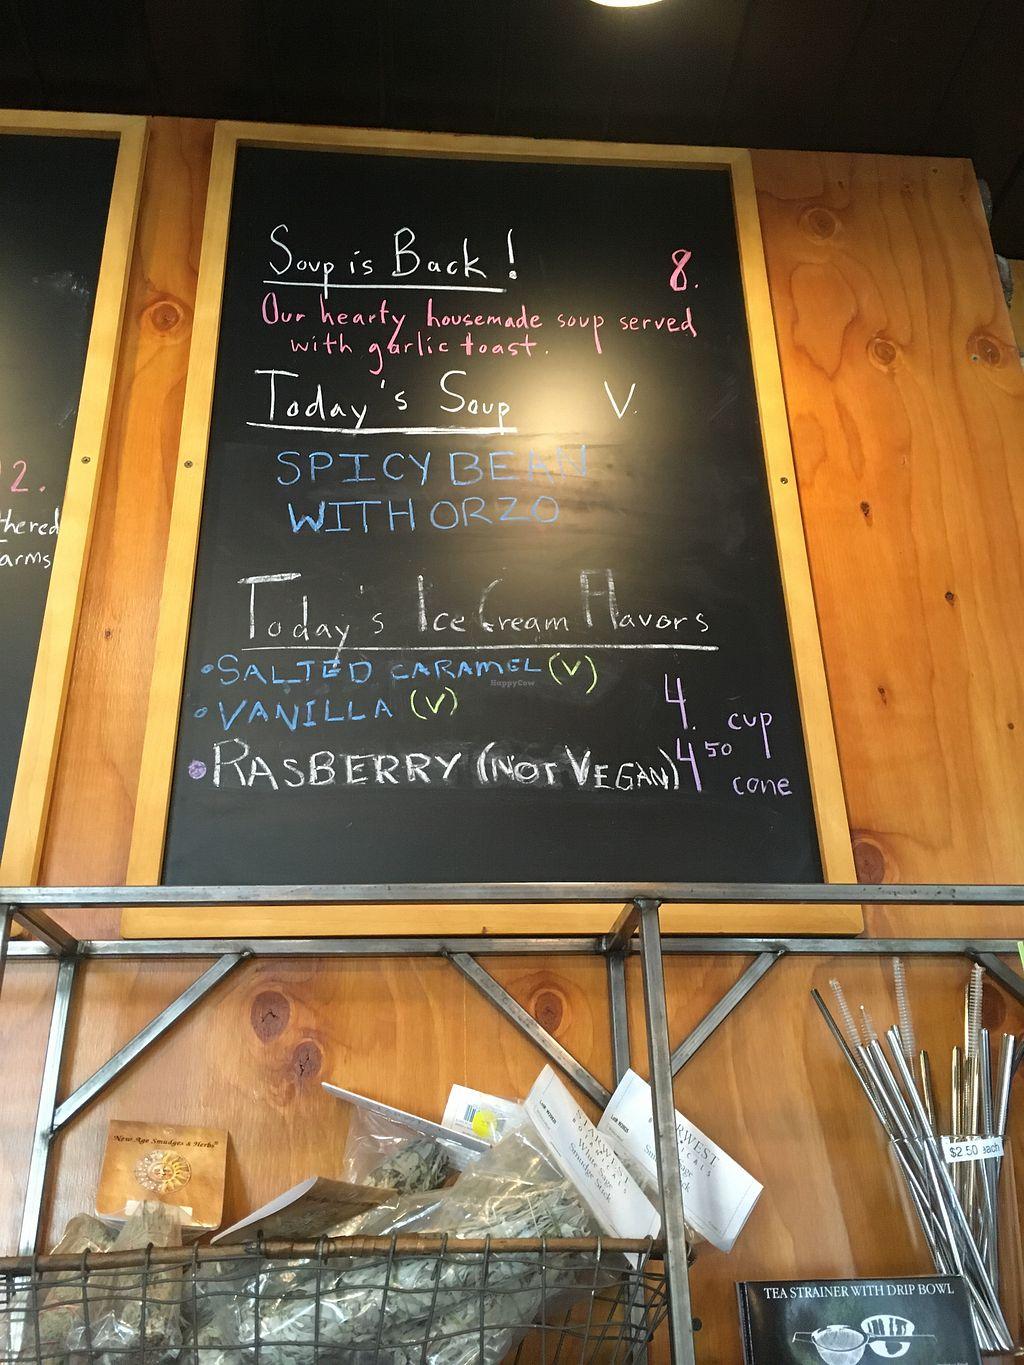 Soup is Back!
8.
Our hearty housemade soup served
with garlic toast.
Today's Soup V.
SPICY BEAN
WITH ORZO
Today's Ice Cream Flavors
• SALTED CARAMEL (V)
• VANILLA (V)
4. cup
• RASBERRY (NOT VEGAN)
4 50 cone
2.
thered
arms
HappyCow
New Age Smudges & Herbs®
STARWEST
White Sage
Smudge Stick
RWEST
$2.50 each
TEA STRAINER WITH DRIP BOWL